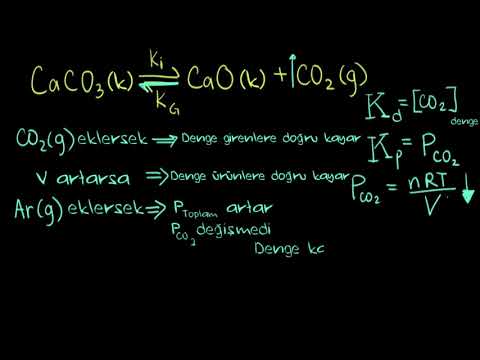 CaCO₃(k) ⇌ CaO(k) + ↑CO₂(g)
Kİ
KG
Kd = [CO₂]denge
CO₂(g) eklersek ⇒ Denge girenlere doğru kayar
Kp = PCO₂
V artarsa ⇒ Denge ürünlere doğru kayar
PCO₂ = nRT/V ↓
Ar(g) eklersek ⇒ PToplam artar
PCO₂ değişmedi
Denge ka